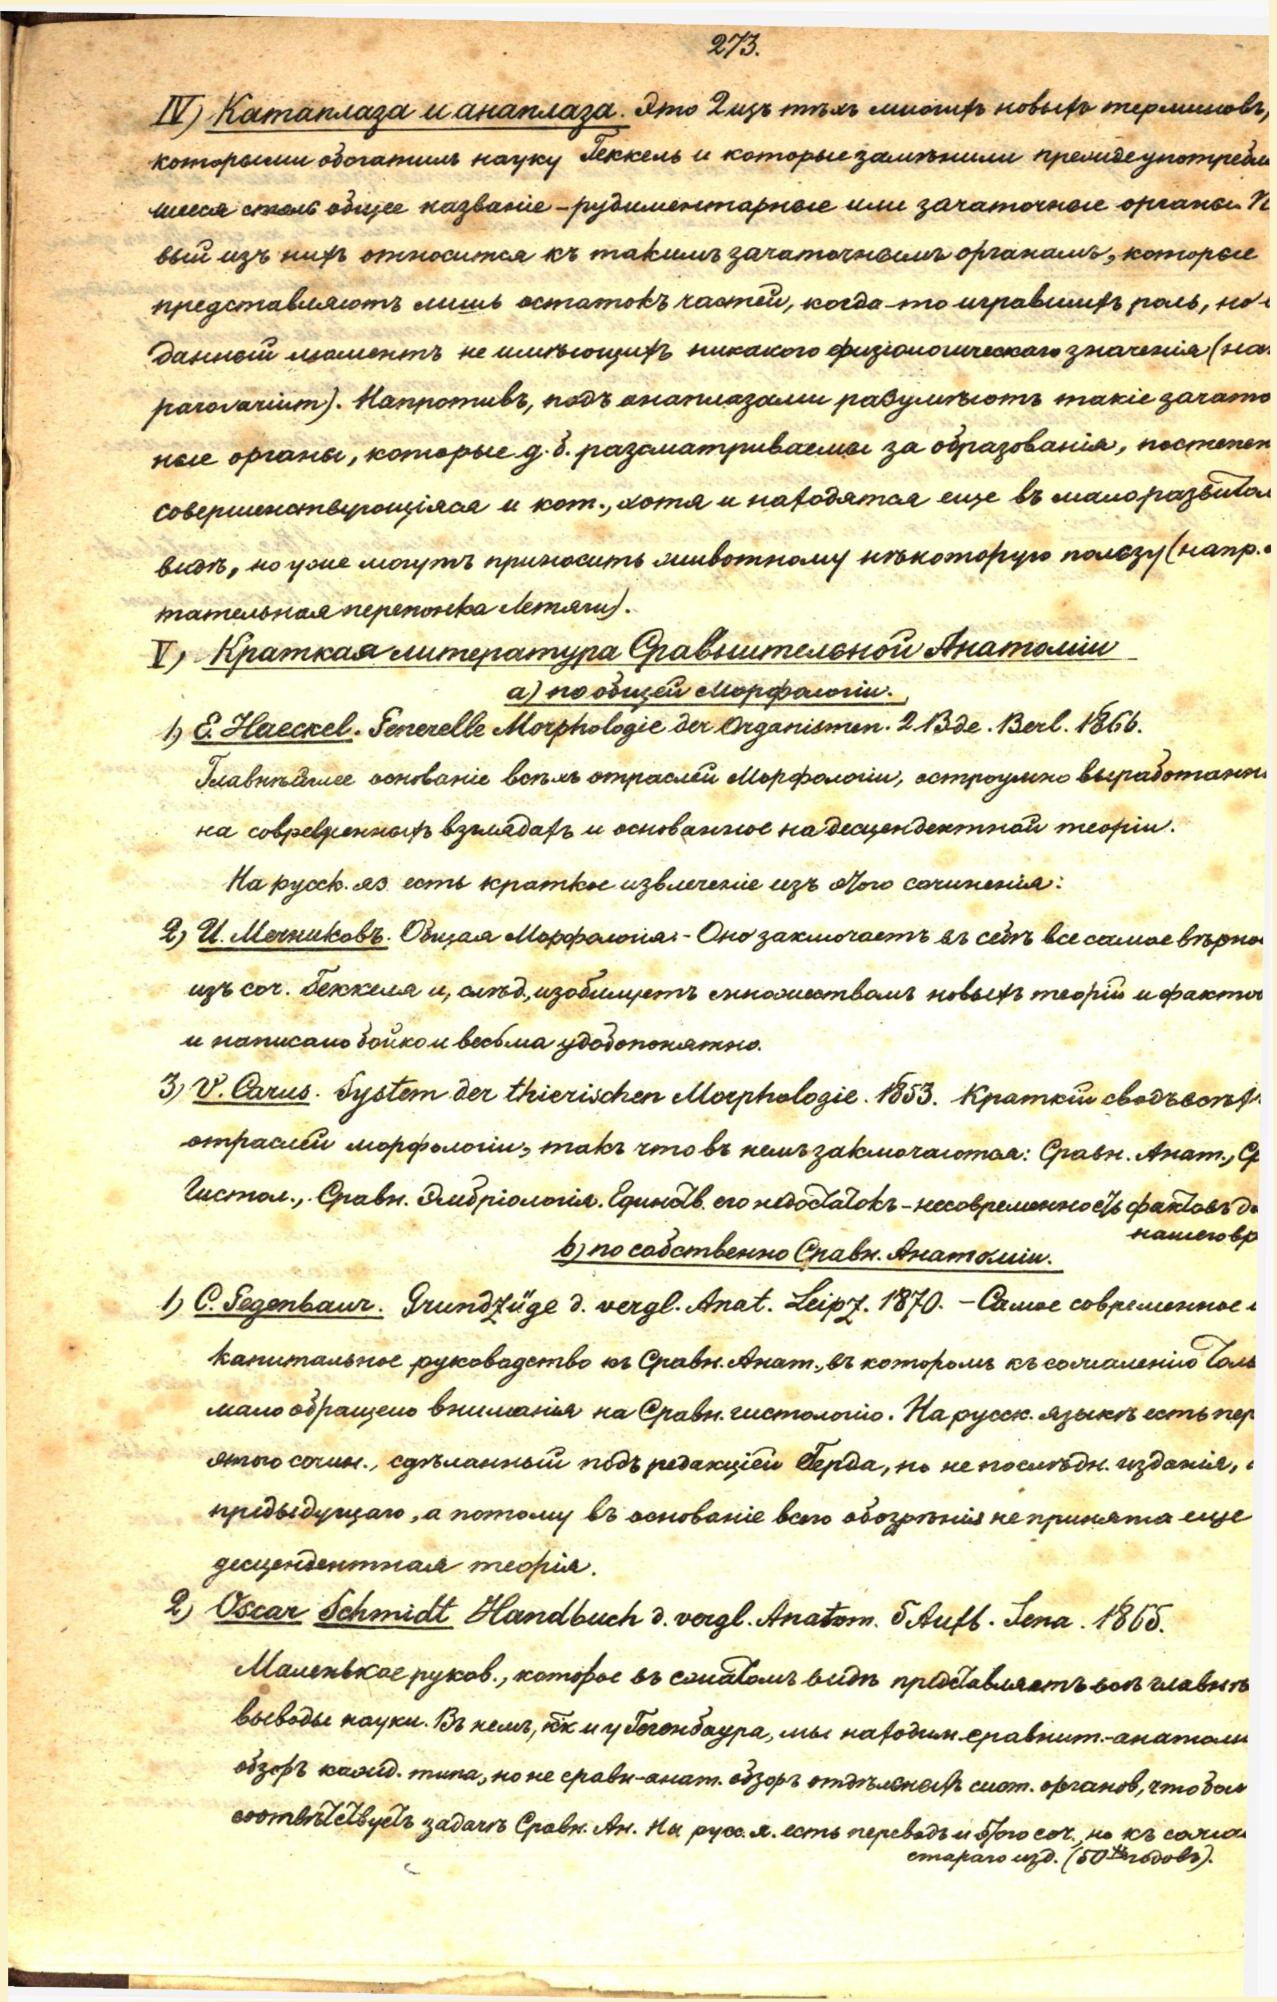 273.
IV) Катаплаза и анаплаза. Это 2 изъ тѣхъ многихъ новыхъ терминовъ,
которыми обогатилъ науку Геккель и которые замѣнили прежде употребля
шееся столь общее названіе – рудиментарные или зачаточные органы. П
вый изъ нихъ относится къ такимъ зачаточнымъ органамъ, которые
представляютъ лишь остатокъ частей, когда-то игравшихъ роль, но
данный моментъ не имѣющихъ никакого физіологическаго значенія (на
parovarium). Напротивъ, подъ анаплазами разумѣютъ такіе зачато
ные органы, которые д. б. разсматриваемы за образованія, постепен
совершенствующіяся и кот., хотя и находятся еще въ мало развитом
видѣ, но уже могутъ приносить животному нѣкоторую пользу (напр.
тательная перепонка Летяги).
V) Краткая литература Сравнительной Анатоміи
a) по общей Морфологіи.
1) E. Haeckel. Generelle Morphologie der Organismen. 2 Bde. Berl. 1866.
Главнѣйшее основаніе всѣхъ отраслей Морфологіи, остроумно выработанн
на современныхъ взглядахъ и основанное на десцендентной теоріи.
На русск. яз. есть краткое извлеченіе изъ этого сочиненія:
2) И. Мечниковъ. Общая Морфологія. – Оно заключаетъ въ себѣ все самое вѣрно
изъ соч. Геккеля и, слѣд., изобилуетъ множествомъ новыхъ теорій и факто
и написано бойко и весьма удобопонятно.
3) V. Carus. System der thierischen Morphologie. 1853. Краткій сводъ всѣхъ
отраслей морфологіи, такъ что въ немъ заключаются: Сравн. Анат., Ср
Гистол., Сравн. Эмбріологія. Единств. его недостатокъ – несовременность фактовъ д
нашего вр
b) по собственно Сравн. Анатоміи.
1) C. Gegenbaur. Grundzüge d. vergl. Anat. Leipz. 1870. – Самое современное
капитальное руководство къ Сравн. Анат., въ которомъ къ сожаленію толь
мало обращено вниманія на Сравн. гистологію. На русск. языкѣ есть пер
этого сочин., сдѣланный подъ редакціей Герда, но не послѣдн. изданія,
предыдущаго, а потому въ основаніе всего обозрѣнія не принята еще
десцендентная теорія.
2) Oscar Schmidt Handbuch d. vergl. Anatom. 5 Aufl. Jena. 1865.
Маленькое руков., которое въ сжатомъ видѣ представляетъ всѣ главнѣ
выводы науки. Въ немъ, какъ и у Гегенбаура, мы находим сравнит.-анатоми
обзоръ кажд. типа, но не сравн-анат. обзоръ отдѣльныхъ сист. органов, что бол
соотвѣтствуетъ задачѣ Сравн. Ан. На русс. я. есть переводъ и этого соч., но къ сожа
стараго изд. (50ыхъ годовъ).